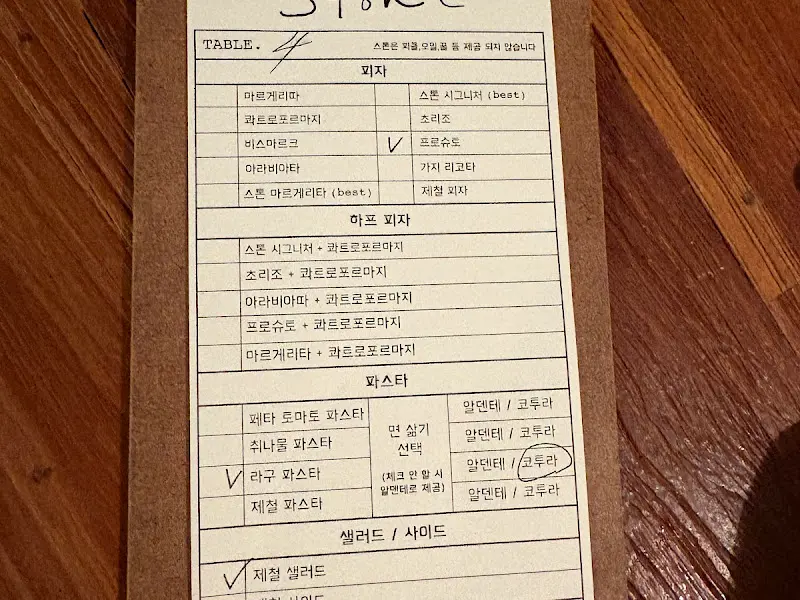 TABLE. 4
스톤은 피클,오일,꿀 등 제공 되지 않습니다
피자
마르게리따 스톤 시그니처 (best)
콰트로포르마지 초리조
비스마르크 V 프로슈토
아라비아타 가지 리코타
스톤 마르게리타 (best) 제철 피자
하프 피자
스톤 시그니처 + 콰트로포르마지
초리조 + 콰트로포르마지
아라비아따 + 콰트로포르마지
프로슈토 + 콰트로포르마지
마르게리타 + 콰트로포르마지
파스타
페타 토마토 파스타
취나물 파스타
V 라구 파스타
제철 파스타
면 삶기
선택
(체크 안 할 시
알덴테로 제공)
알덴테 / 코투라
알덴테 / 코투라
알덴테 / 코투라
알덴테 / 코투라
샐러드 / 사이드
V 제철 샐러드